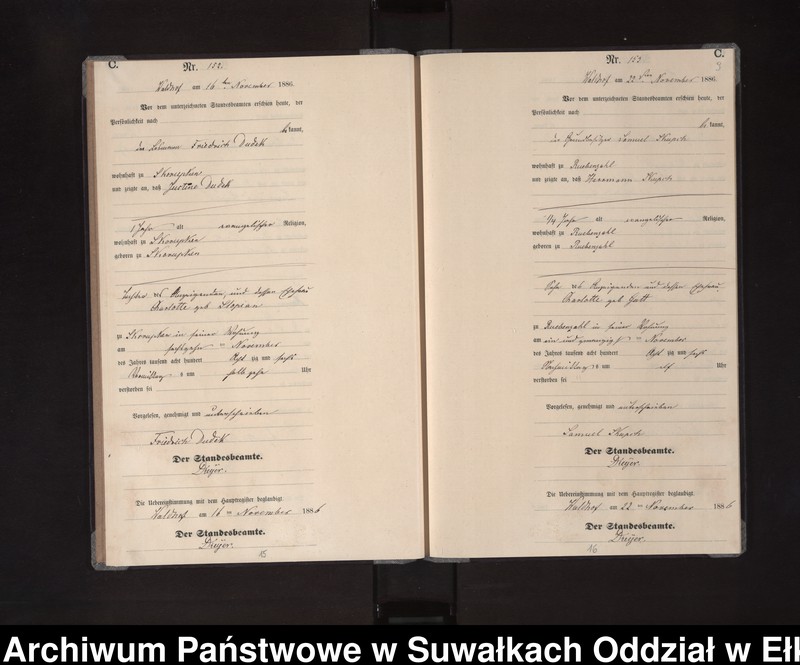 C.
Nr. 152.
Waldhof am 16ten November 1886.
Vor dem unterzeichneten Standesbeamten erschien heute, der
Persönlichkeit nach
bekannt,
der Friedrich Dudek
wohnhaft zu Skomatzko
und zeigte an, daß Justine Dudek
1 Jahr alt evangelischer Religion,
wohnhaft zu
geboren zu
Tochter des Anzeigenden, und dessen Ehefrau
Charlotte geb
zu in seiner Wohnung
am sechszehnten November
des Jahres tausend acht hundert acht zig und sechs
Vormittags um halb zehn Uhr
verstorben sei
Vorgelesen, genehmigt und unterschrieben
Friedrich Dudek
Der Standesbeamte.
Dreyer.
Die Uebereinstimmung mit dem Hauptregister beglaubigt
Waldhof am 16ten November 1886
Der Standesbeamte.
Dreyer.
15
C.
3
Nr. 153
Waldhof am 22ten November 1886.
Vor dem unterzeichneten Standesbeamten erschien heute, der
Persönlichkeit nach
bekannt,
der Grundbesitzer Samuel
wohnhaft zu Ruhenzahl
und zeigte an, daß Herrmann
1/4 Jahr alt evangelischer Religion,
wohnhaft zu Ruhenzahl
geboren zu Ruhenzahl
Sohn des Anzeigenden und dessen Ehefrau
Charlotte geb
zu Ruhenzahl in seiner Wohnung
am ein und zwanzigsten November
des Jahres tausend acht hundert acht zig und sechs
Nachmittags um elf Uhr
verstorben sei
Vorgelesen, genehmigt und unterschrieben
Samuel
Der Standesbeamte.
Dreyer.
Die Uebereinstimmung mit dem Hauptregister beglaubigt
Waldhof am 22ten November 1886
Der Standesbeamte.
Dreyer.
16
Archiwum Państwowe w Suwałkach Oddział w Eł